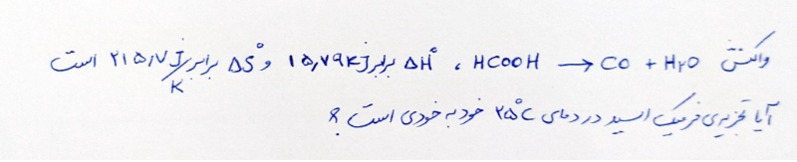 واکنش HCOOH → CO + H۲O ، ΔH° برابر ۱۵٫۷۹ kJ و ΔS° برابر ۲۱۵٫۷ J/K است
آیا تجزیه‌ی فرمیک اسید در دمای ۲۵°C خود به خودی است ؟